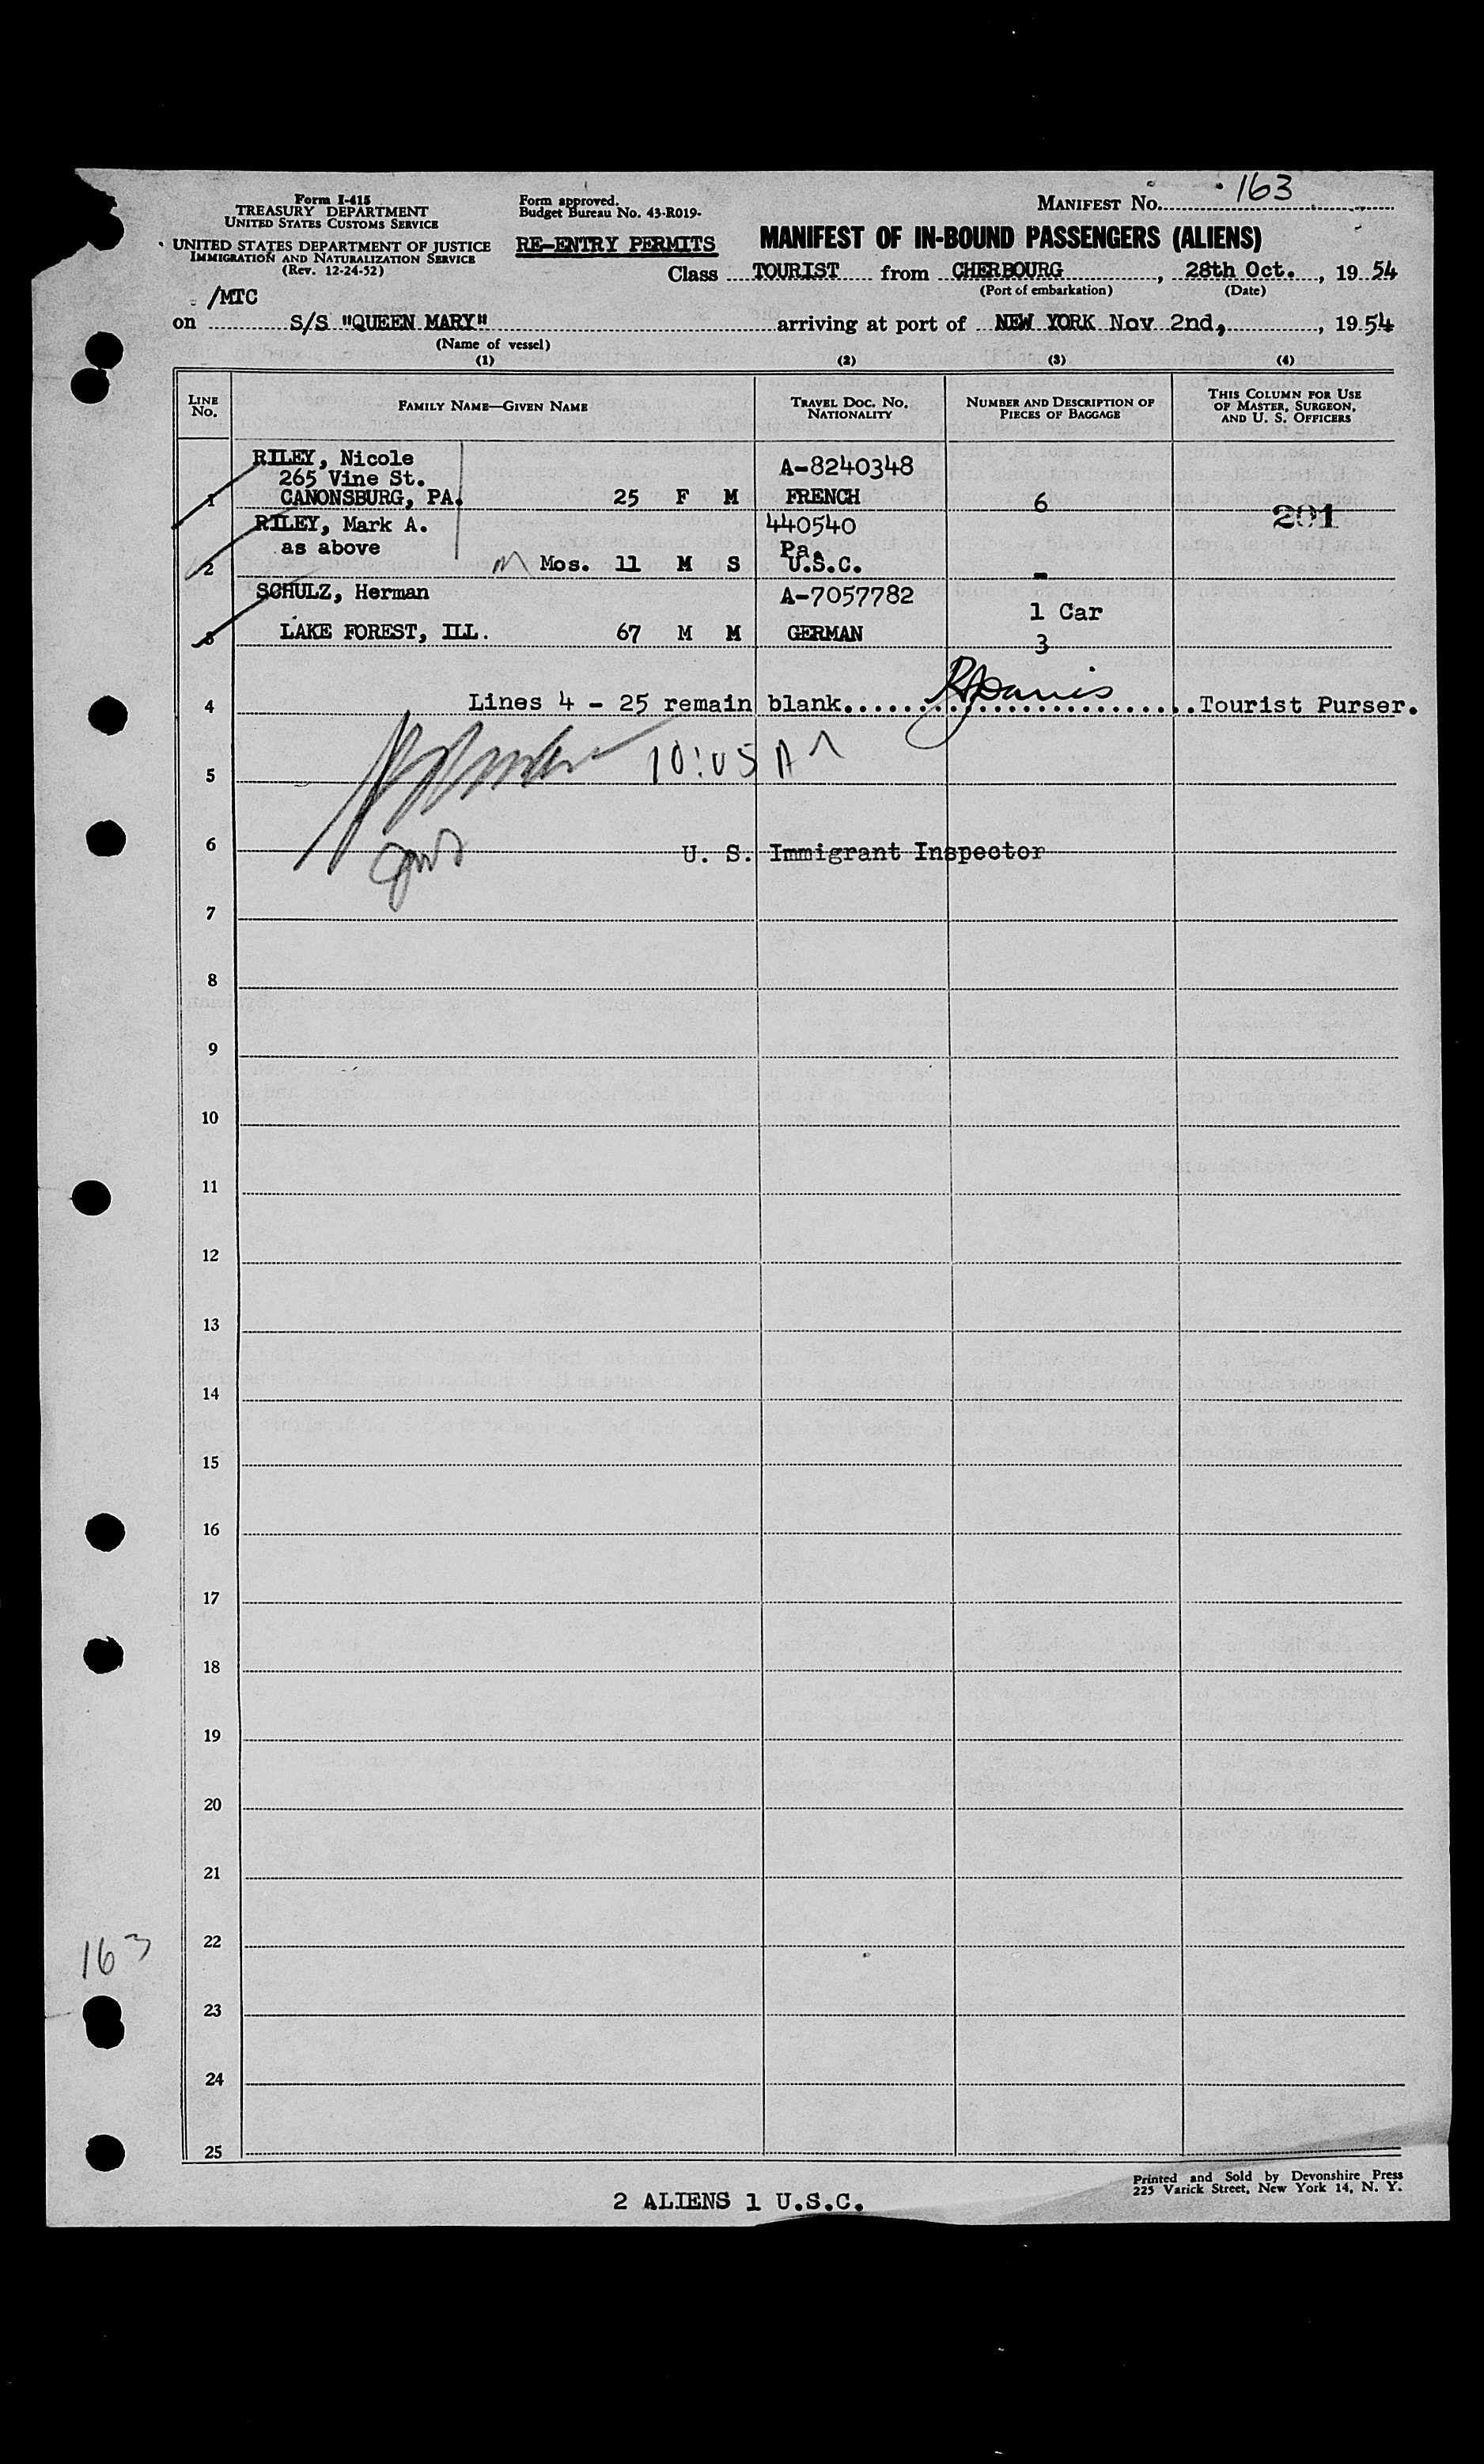 Form I-415
TREASURY DEPARTMENT
UNITED STATES CUSTOMS SERVICE
UNITED STATES DEPARTMENT OF JUSTICE
IMMIGRATION AND NATURALIZATION SERVICE
(Rev. 12-24-52)
Form approved.
Budget Bureau No. 43-R019-
RE-ENTRY PERMITS
MANIFEST NO. 163
MANIFEST OF IN-BOUND PASSENGERS (ALIENS)
Class TOURIST from CHERBOURG, 28th Oct., 1954
(Port of embarkation) (Date)
/MTC
on S/S "QUEEN MARY" arriving at port of NEW YORK Nov 2nd, , 1954
(Name of vessel)
(1) (2) (3) (4)
LINE NO. FAMILY NAME—GIVEN NAME TRAVEL DOC. NO. NATIONALITY NUMBER AND DESCRIPTION OF PIECES OF BAGGAGE THIS COLUMN FOR USE OF MASTER, SURGEON, AND U. S. OFFICERS
RILEY, Nicole A-8240348
265 Vine St.
1 CANONSBURG, PA. 25 F M FRENCH 6
201
RILEY, Mark A. 440540
as above Pa.
2 M Mos. 11 M S U.S.C. -
SCHULZ, Herman A-7057782
1 Car
3 LAKE FOREST, ILL. 67 M M GERMAN 3
4 Lines 4 - 25 remain blank. RJDavis Tourist Purser.
5 10:05 A
6 U. S. Immigrant Inspector
7
8
9
10
11
12
13
14
15
16
17
18
19
20
21
22
163
23
24
25
Printed and Sold by Devonshire Press
225 Varick Street, New York 14, N. Y.
2 ALIENS 1 U.S.C.